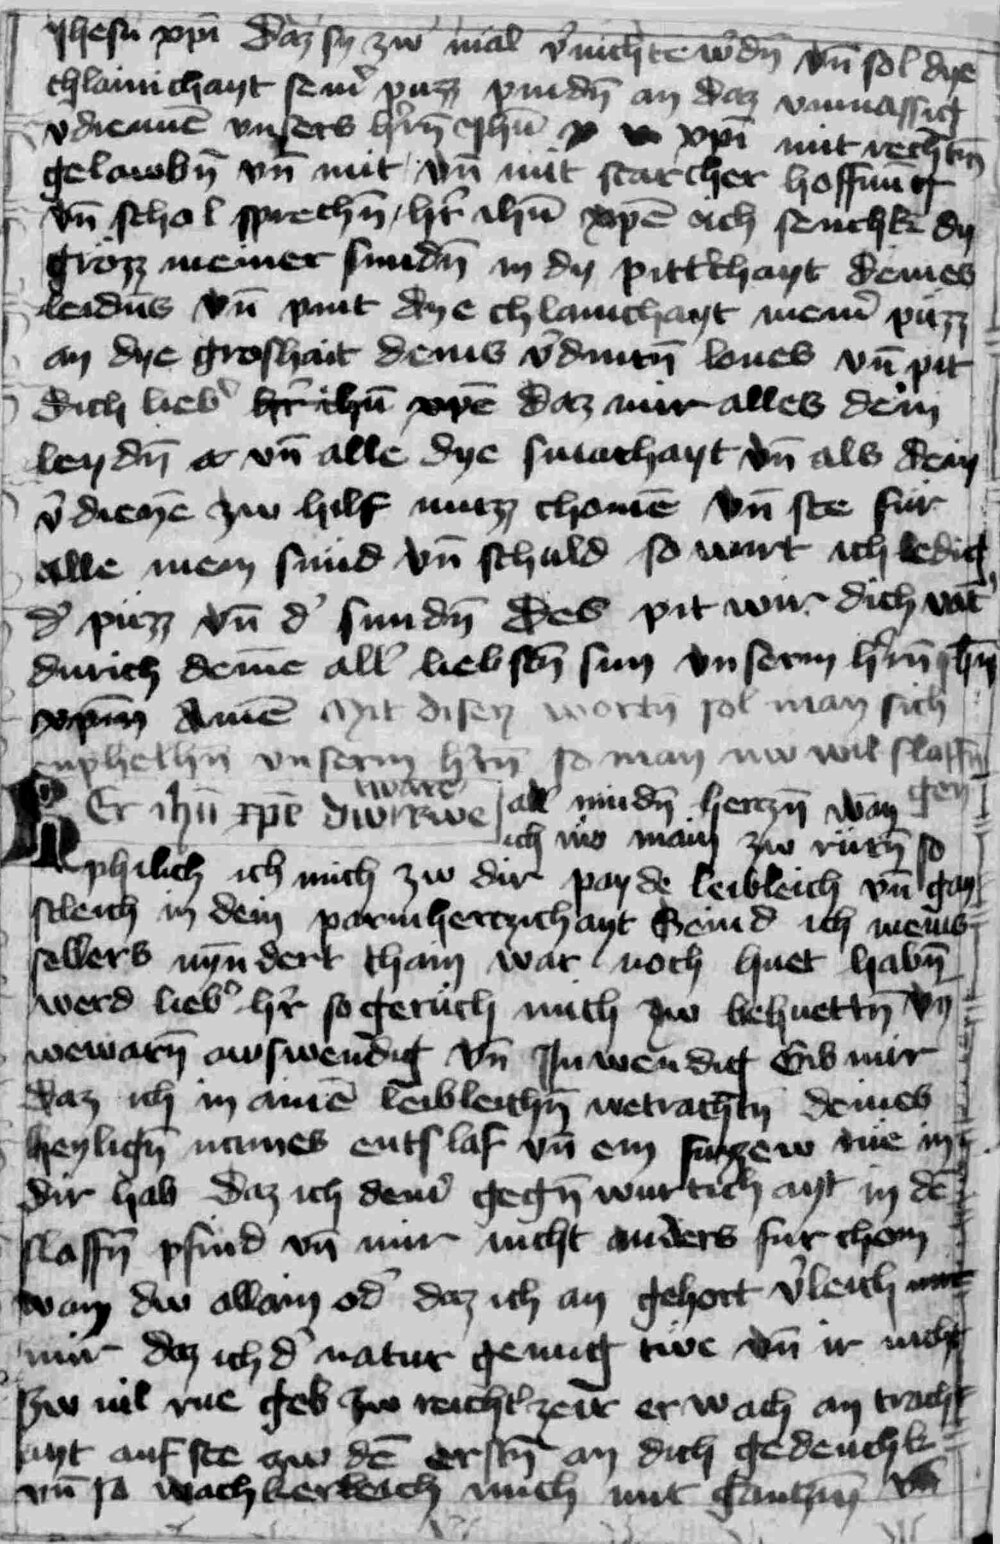 ihesu xpi daz sy zw mal v̄nichte w̄dn̄ vn̄ sol dye
chlainchayt seinˀ puzz pindn̄ an daz vnmassig
vdienen̄ vnsers hˀrn̄ ihū xpi mit rechtn̄
gelawbn̄ vn̄ mit vn̄ mit starcher hoffnung
vn̄ schol sprechn̄ hˀr ihū xpē ich senchk dy
grözz meiner sundn̄ in dy pittˀchayt deines
leidn̄s vn̄ pint dye chlainchayt meinˀ püzz
an dye groshait deins v̄dintn̄ lones vn̄ pit
dich liebˀ hˀr ihū xpē daz mir alles dein
leydn̄ vn̄ alle dye smachayt vn̄ als dein
v̄dienē zw hilf nutz chomē vn̄ ste für
alle mein sünd vn̄ schuld so wirt ich ledig
dˀ püzz vn̄ dˀ sundn̄ des pit wir dich vatˀ
durich deinē allˀ liebstn̄ sun vnserm hˀrn̄ ihū
xpum Amē Mit disen wortn̄ sol man sich
enphelhn̄ vnserm hˀrn̄ so man nw wil slaffn̄
gen
Er ihū xpē dw trwe allˀ mudn̄ herczn̄ wan
ware
ich nw main zw rürn̄ so
Enphilich ich mich zw dir payde leibleich vn̄ gay
stleich in dein parmherczichayt Seind ich meins
sellers nyndert chain war noch huet habn̄
werd liebˀ hˀr so geruch mich zw behuettn̄ vn̄
bewarn̄ auswendig vn̄ Inwendig Gib mir
daz ich in ainē leibleichn̄ wetrachtn̄ deines
heylign̄ names entslaf vn̄ ein rue in
dir hab daz ich deinˀ gegn̄wurtichayt in dē
slaffn̄ pfind vn̄ mir nicht anders fur chom
wan dw allain odˀ daz ich an gehort v̄leich
mir daz ich dˀ natur genug twe vn̄ ir nicht
zw vil rue geb zw rechtˀ zeit erwach an trach
ayt auf ste zw dē erstn̄ an dich gedenchk
vn̄ so wachberleich mich mit vn̄